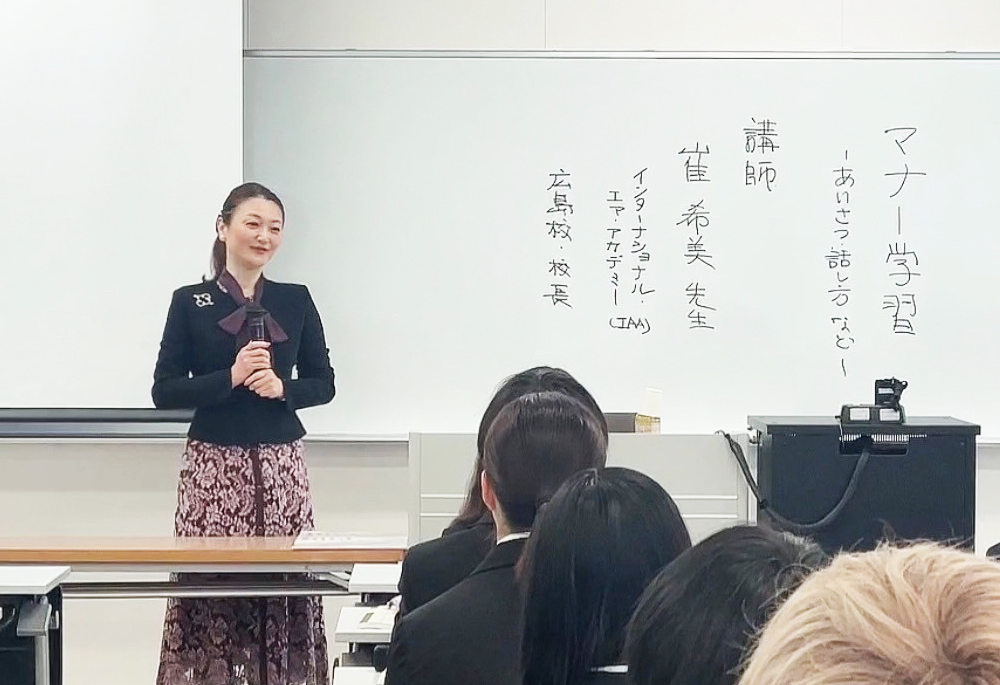 マナー学習
-あいさつ・話し方など-
講師
崔 希美 先生
インターナショナル・
エア・アカデミー(IAA)
広島校・校長